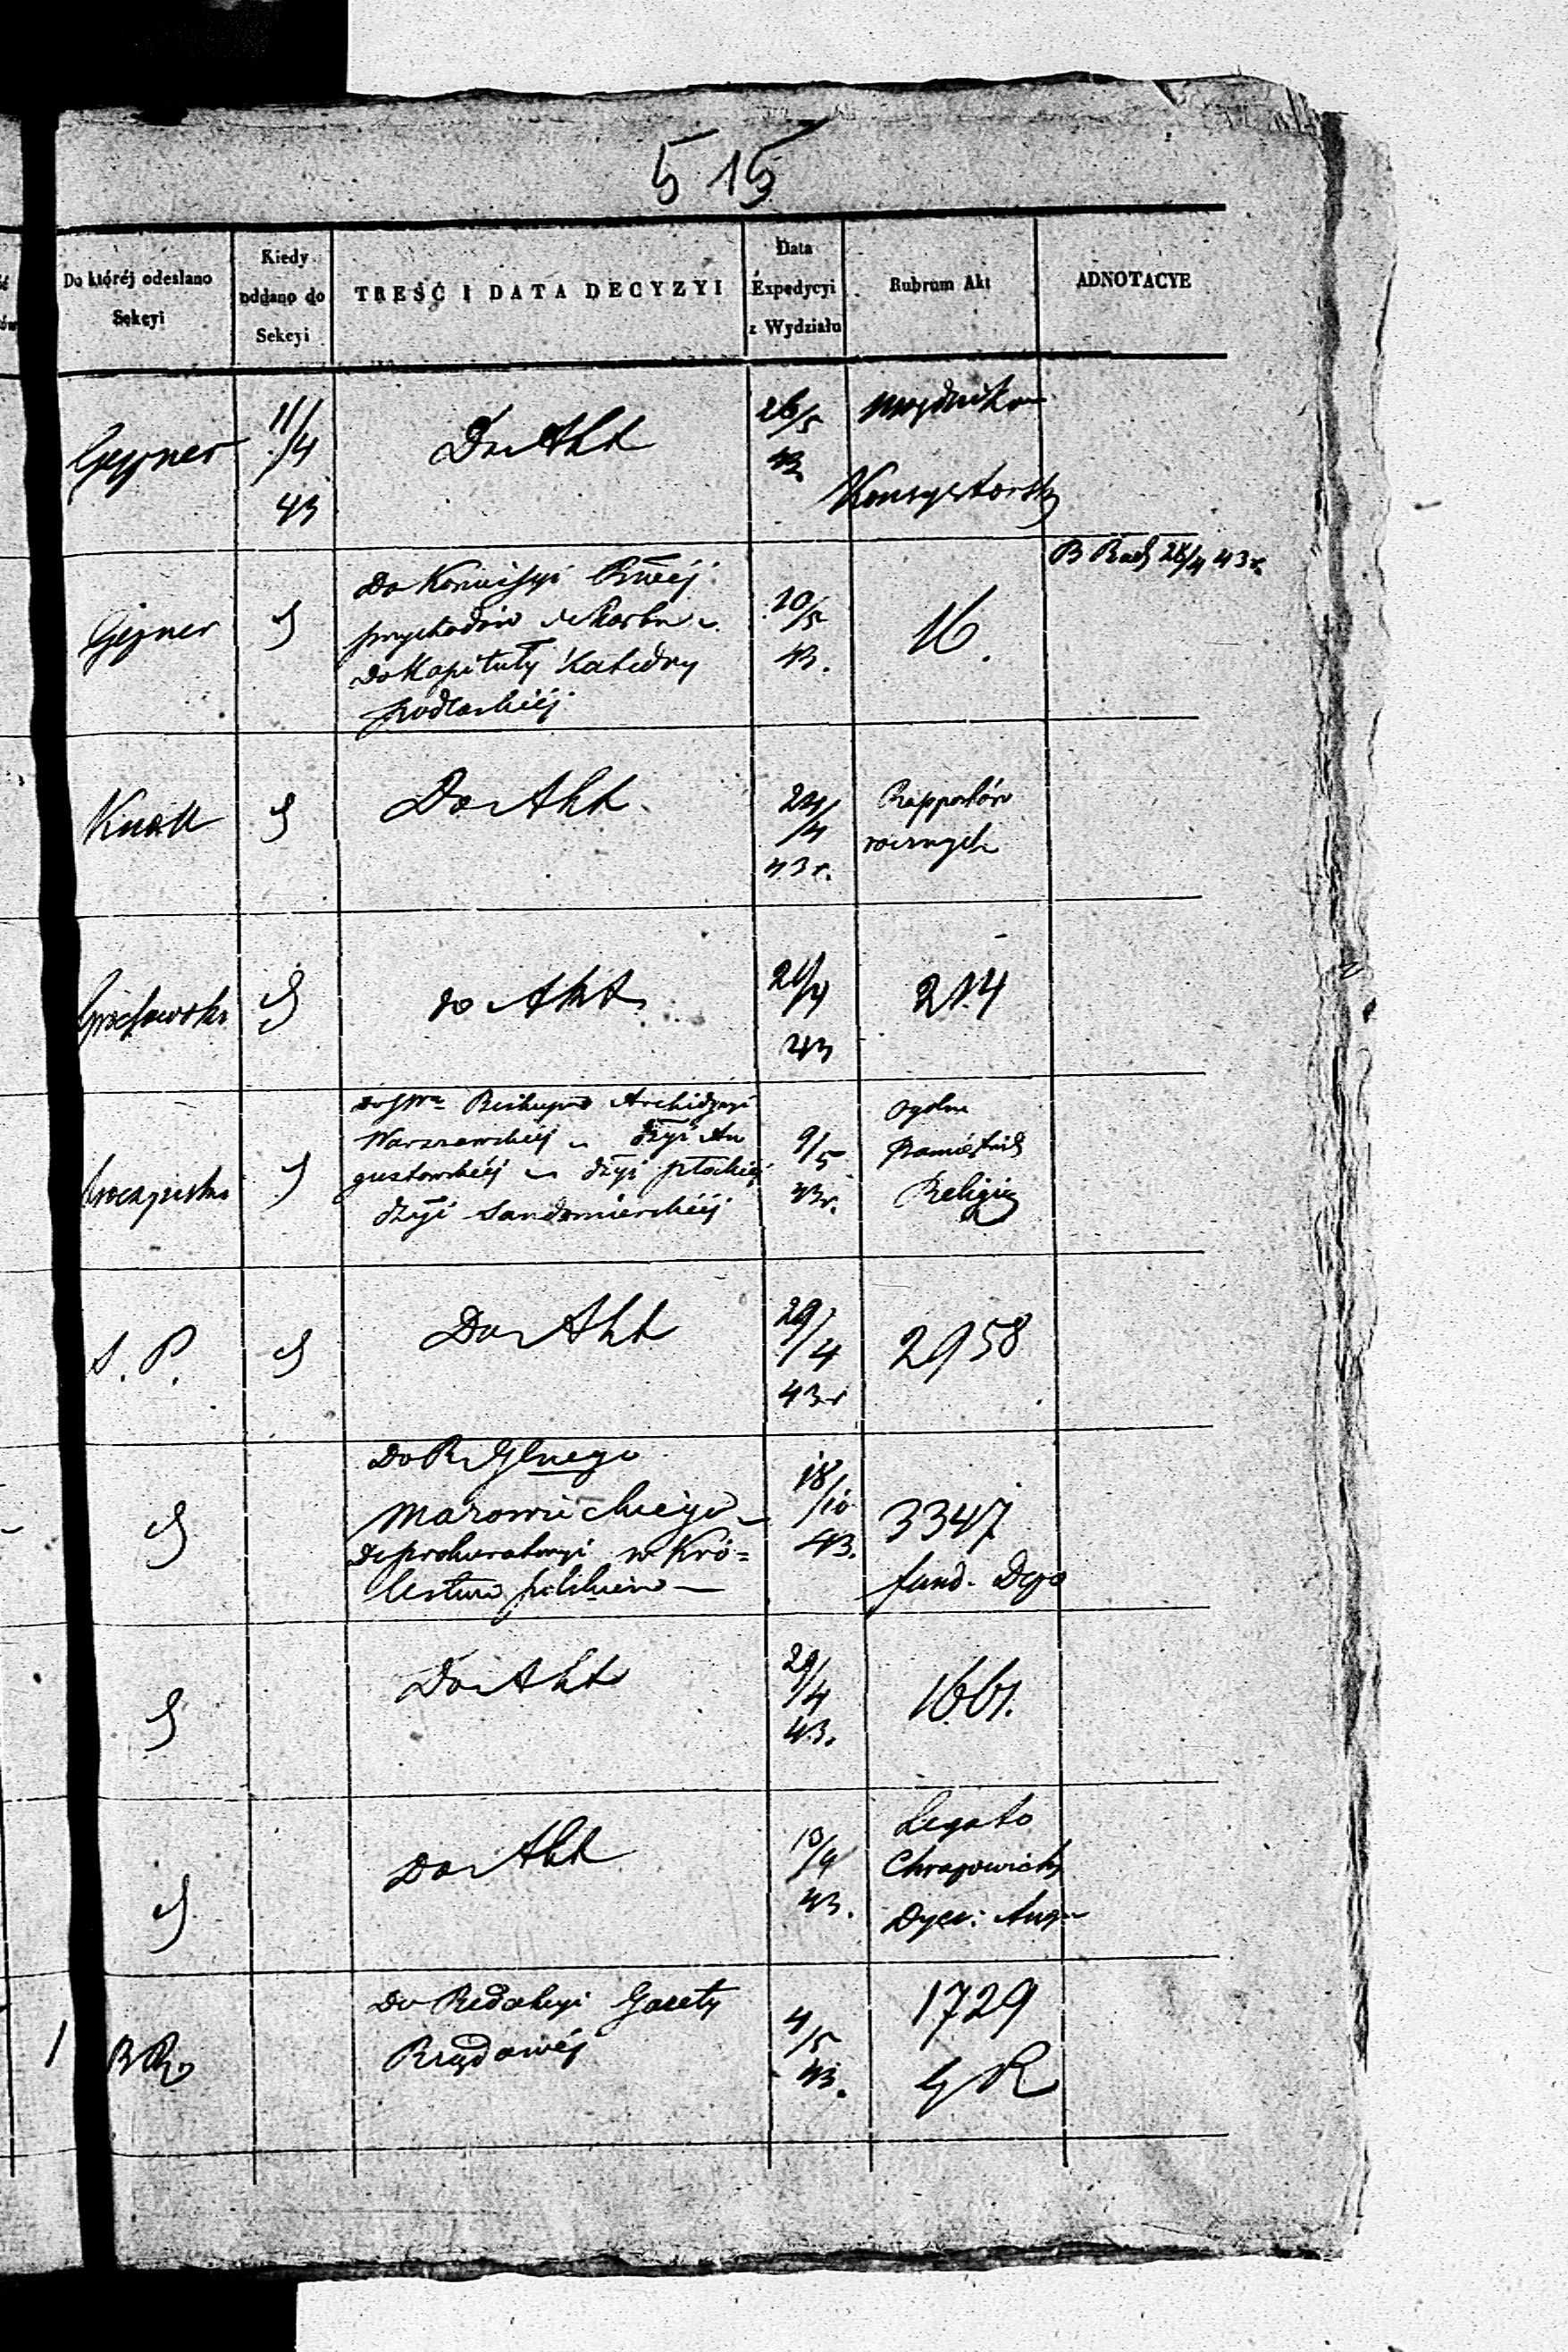 515
Do któréj odesłano
Sekcyi
Kiedy
oddano do
Sekcyi
TREŚĆ I DATA DECYZYI
Data
Expedycyi
z Wydziału
Rubrum Akt
ADNOTACYE
Gejzner
11/4
43
Do Akt
26/5
43
Konsystorsky
Gejzner
Do Komissyi Rząéj
przychodów i Skarbu
Do Kapituły Katedry
podlaskiéj
20/5
43.
16.
B Rad 28/4 43 r.
Knoll
Do Akt
24/4
43 r.
Rapportów
rocznych
do Akt
21/4
43
214
Biskupa Archidyezyi
Warszawskiéj Dyi Au
gustowskiéj Dyi płockiéj
Dyi Sandomierskiéj
9/5
43 r.
Ogólne
Religii
S. P.
Do Akt
29/4
43 r
2958
Do R Glnego
Mazowieckiego
Do prokuratoryi w Kró=
lestwie polskiem
18/10
43.
3347
fund.
Do Akt
29/4
43.
1661.
Do Akt
10/9
43.
Legato
Dyec: Aug
Do Redakcyi Gazety
Rządowéj
4/5
43.
1729
G R